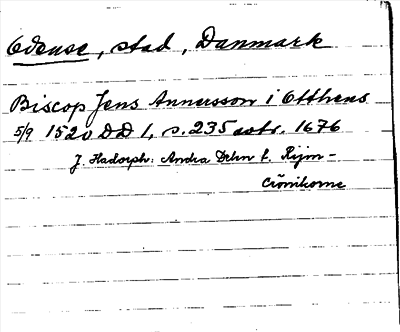 Odense, stad, Danmark
Biscop Jens Annersson i Otthens
5/9 1520 DD 1, s. 235 1676
J. Hadorph: Andra Delen t. Rijm-
Crönikorne